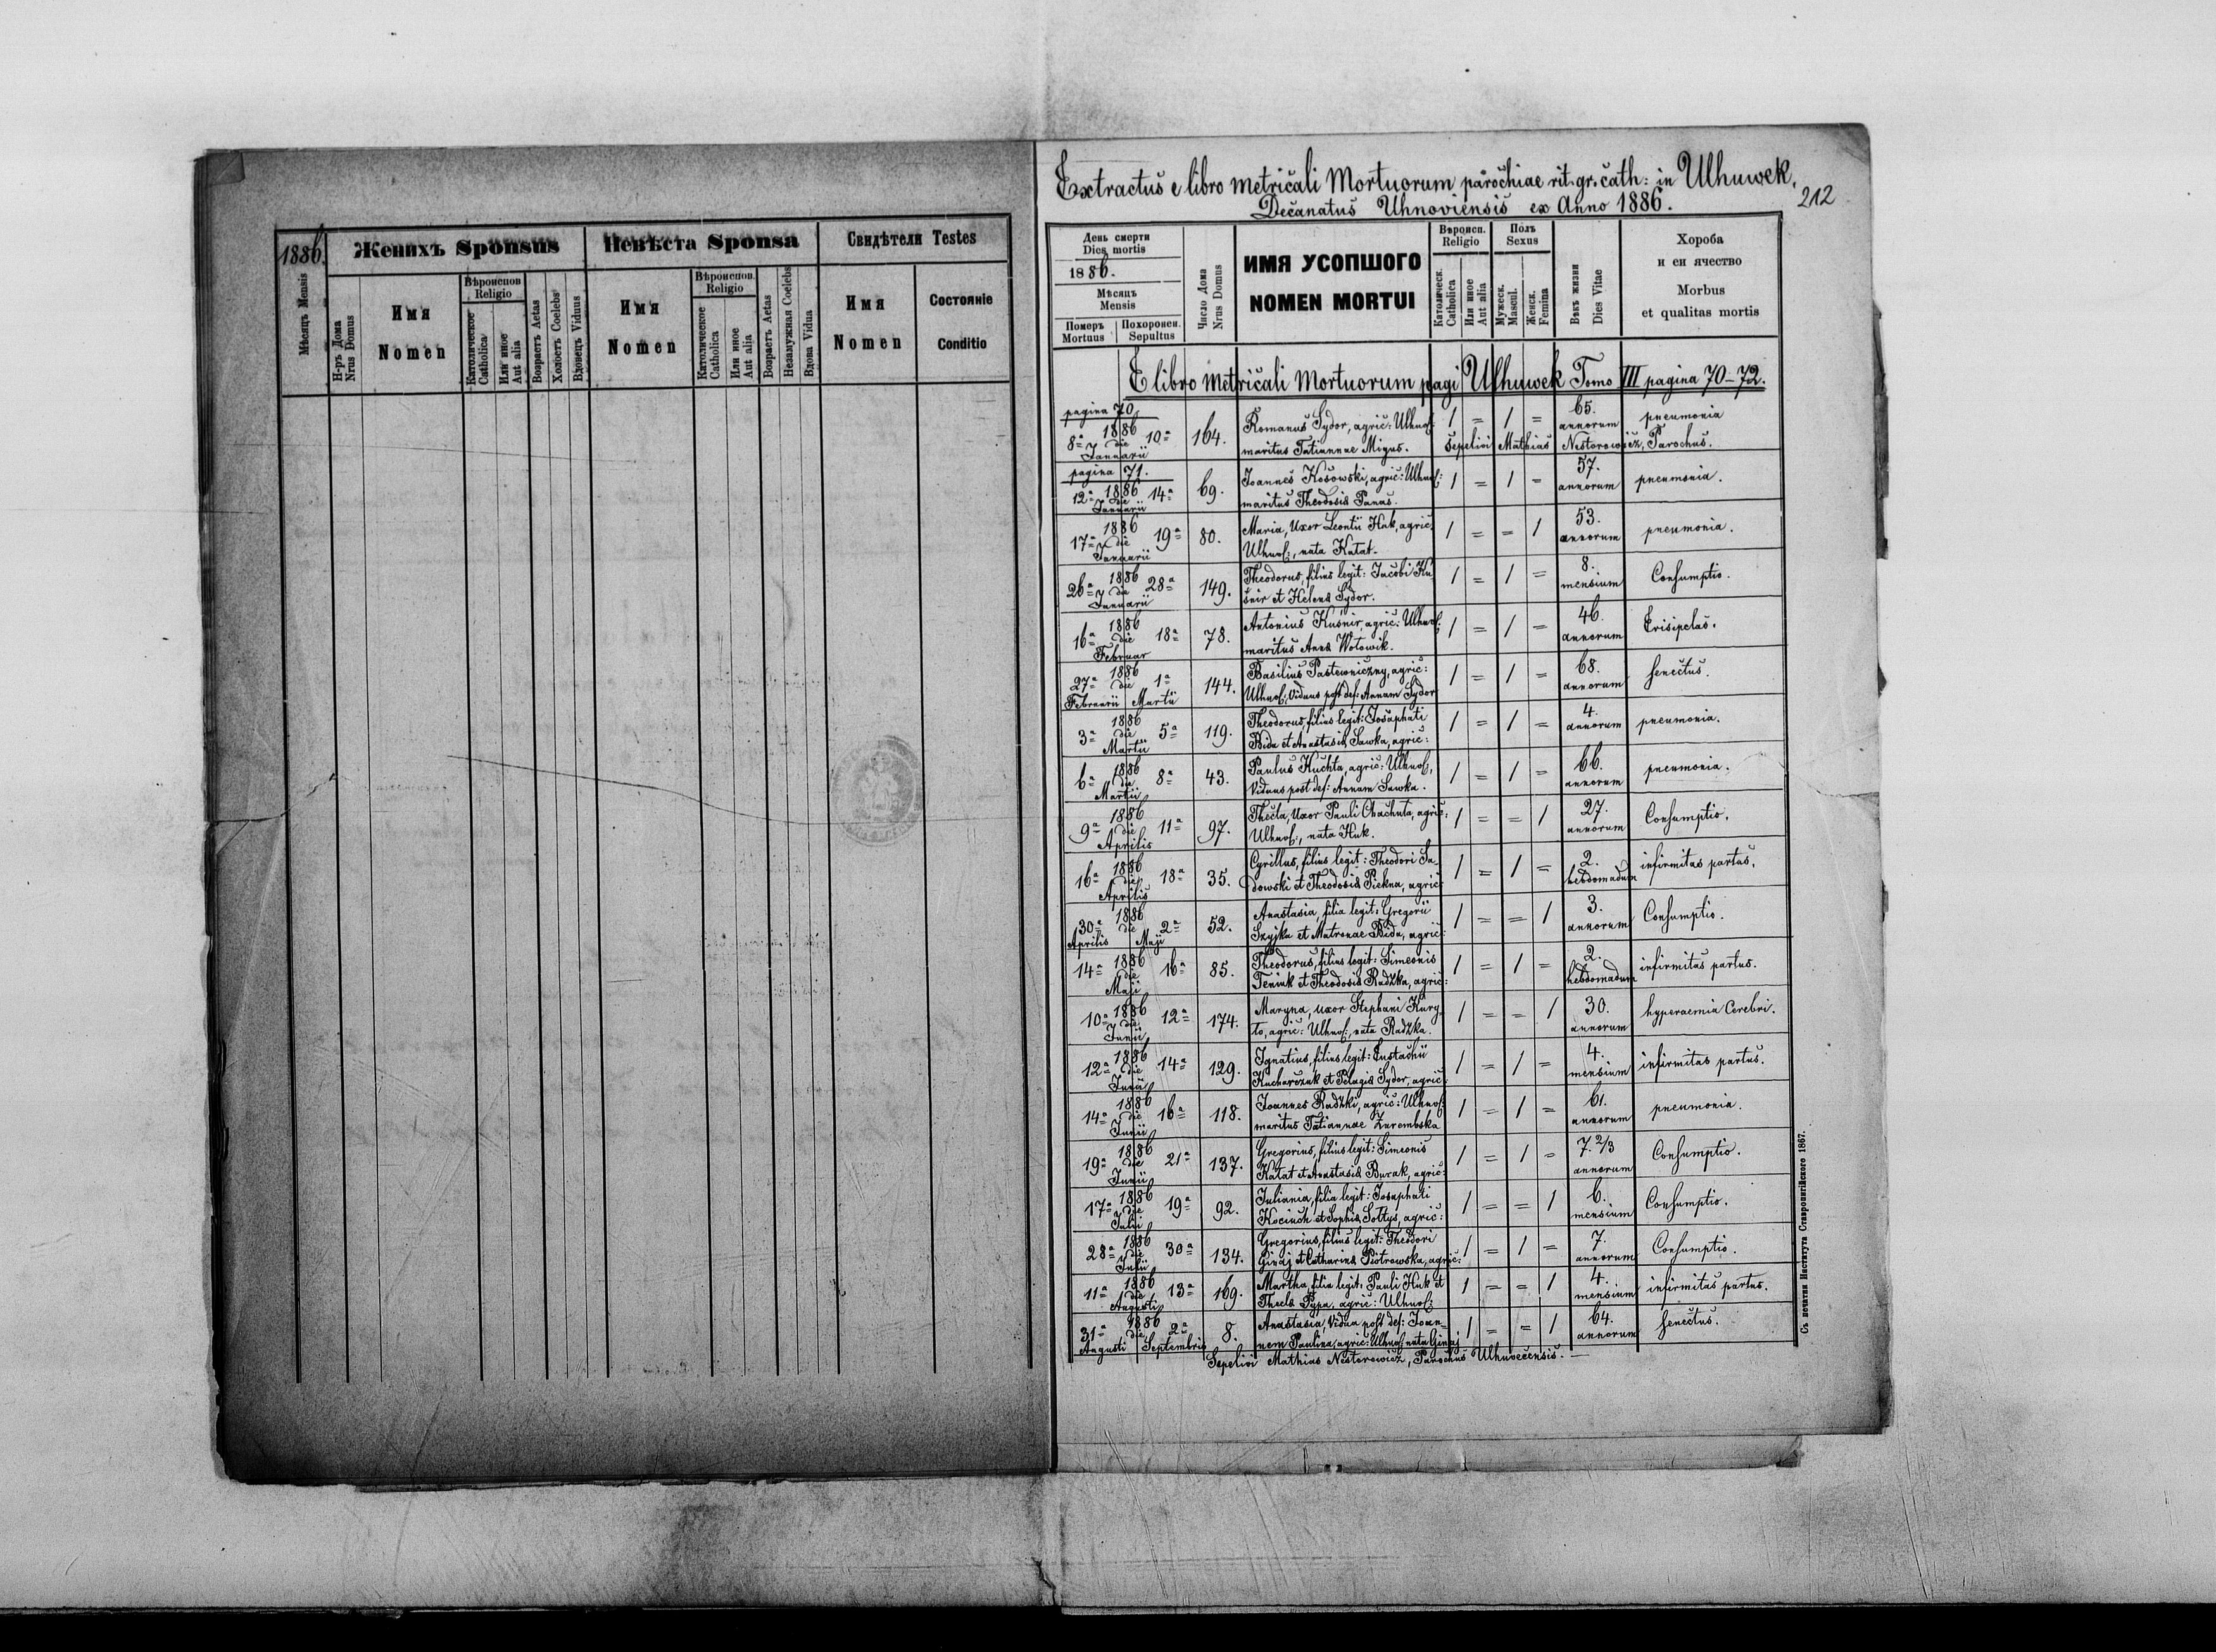 1886.
Женихъ Sponsus
Невѣста Sponsa
Свидѣтели Testes
Мѣсяцъ Mensis
Н-ръ Дома
Nrus Domus
Имя
Nomen
Вѣроиспов
Religio
Католическое
Catholica
Или иное
Aut alia
Возрастъ Aetas
Холостъ Coelebs
Вдовецъ Viduus
Имя
Nomen
Вѣроиспов.
Religio
Католическое
Catholica
Или иное
Aut alia
Возрастъ Aetas
Незамужная Coelebs
Вдова Vidua
Имя
Nomen
Состояніе
Conditio
Extractus e libro metricali Mortuorum parochiae rit. gr. cath: in Ulhuwek,
Decanatus Uhnoviensis ex Anno 1886.
212
День смерти
Dies mortis
1886.
Мѣсяцъ
Mensis
Померъ
Mortuus
Похоронен.
Sepultus
Число Дома
Nrus Domus
ИМЯ УСОПШОГО
NOMEN MORTUI
Вѣроисп.
Religio
Католическ.
Catholica
Или иное
Aut alia
Полъ
Sexus
Мужеск.
Mascul.
Женск.
Femina
Вѣкъ жизни
Dies Vitae
Хороба
и еи ячество
Morbus
et qualitas mortis
E libro metricali Mortuorum pagi Ulhuwek Tomo III pagina 70-72.
pagina 70.
1886
8ª die 10ª 164. Romanus Sydor, agric: Ulhuv: 1 = 1 = 65. annorum pneumonia
Januarii maritus Tatiannae Migus. Sepelivi Mathias Nestorowicz, Parochus.
pagina 71.
1886
12ª die 14ª 69. Joannes Kosowski, agric: Ulhuv: 1 = 1 = 57. annorum pneumonia.
Januarii maritus Theodosia Panas.
1886
17ª die 19ª 80. Maria, Uxor Leontii Huk, agric: 1 = = 1 53. annorum pneumonia.
Januarii Ulhuv:, nata Katat.
1886
26ª die 28ª 149. Theodorus, filius legit: Jacobi Ku 1 = 1 = 8. mensium Consumptio.
Januarii śnir et Helena Sydor.
1886
16ª die 18ª 78. Antonius Kuśnir, agric: Ulhuv: 1 = 1 = 46. annorum Erisipelas.
Februar maritus Anna Wołowik.
1886
27ª die 1ª 144. Basilius Pastewniczny, agric: 1 = 1 = 68. annorum senectus.
Februarii Martii Ulhuv: Viduus post def: Annam Sydor
1886
3ª die 5ª 119. Theodorus, filius legit: Josaphati 1 = 1 = 4. annorum pneumonia.
Martii Bida et Anastasia Sawka, agric:
1886
6ª die 8ª 43. Paulus Kuchta, agric: Ulhuv:, 1 = 1 = 66. annorum pneumonia.
Martii Viduus post def: Annam Sawka.
1886
9ª die 11ª 97. Thecla, Uxor Pauli Chachuta, agric: 1 = = 1 27. annorum Consumptio.
Aprilis Ulhuv:, nata Huk.
1886
16ª die 18ª 35. Cyrillus, filius legit: Theodori Sa- 1 = 1 = 2. hebdomadum infirmitas partus.
Aprilis dowski et Theodosia Piekna, agric:
1886
30ª die 2ª 52. Anastasia, filia legit: Gregorii 1 = = 1 3. annorum Consumptio.
Aprilis Maji Szyjka et Matronae Bida, agric:
1886
14ª die 16ª 85. Theodorus, filius legit: Simeonis 1 = 1 = 2. hebdomadum infirmitas partus.
Maji Teniuk et Theodosia Radzka, agric:
1886
10ª die 12ª 174. Maryna, uxor Stephani Kury- 1 = = 1 30. annorum hyperaemia Cerebri.
Junii to, agric: Ulhuv:, nata Radzka.
1886
12ª die 14ª 129. Ignatius, filius legit: Eustachii 1 = 1 = 4. mensium infirmitas partus.
Junii Kucharczuk et Pelagia Sydor, agric:
1886
14ª die 16ª 118. Joannes Radzki, agric: Ulhuv: 1 = 1 = 61. annorum pneumonia.
Junii maritus Tatiannae Zurembska
1886
19ª die 21ª 137. Gregorius, filius legit: Simeonis 1 = 1 = 7.2/3 annorum Consumptio.
Junii Katat et Anastasia Burak, agric:
1886
17ª die 19ª 92. Juliania, filia legit: Josaphati 1 = = 1 6. mensium Consumptio.
Julii Kociuch et Sophia Sołtys, agric:
1886
28ª die 30ª 134. Gregorius, filius legit: Theodori 1 = 1 = 7. annorum Consumptio.
Julii Ginaj et Catharina Piotrowska, agric:
1886
11ª die 13ª 169. Martha, filia legit: Pauli Huk et 1 = = 1 4. mensium infirmitas partus.
Augusti Thecla Pypa, agric: Ulhuv:
1886
31ª die 2ª 8. Anastasia, Vidua post def: Joan- 1 = = 1 64. annorum senectus.
Augusti Septembris nem Paulina, agric: Ulhuv: nata Ginaj
Sepelivi Mathias Nestorowicz, Parochus Ulhuvecensis.
Съ печатни Института Ставропигійского 1867.